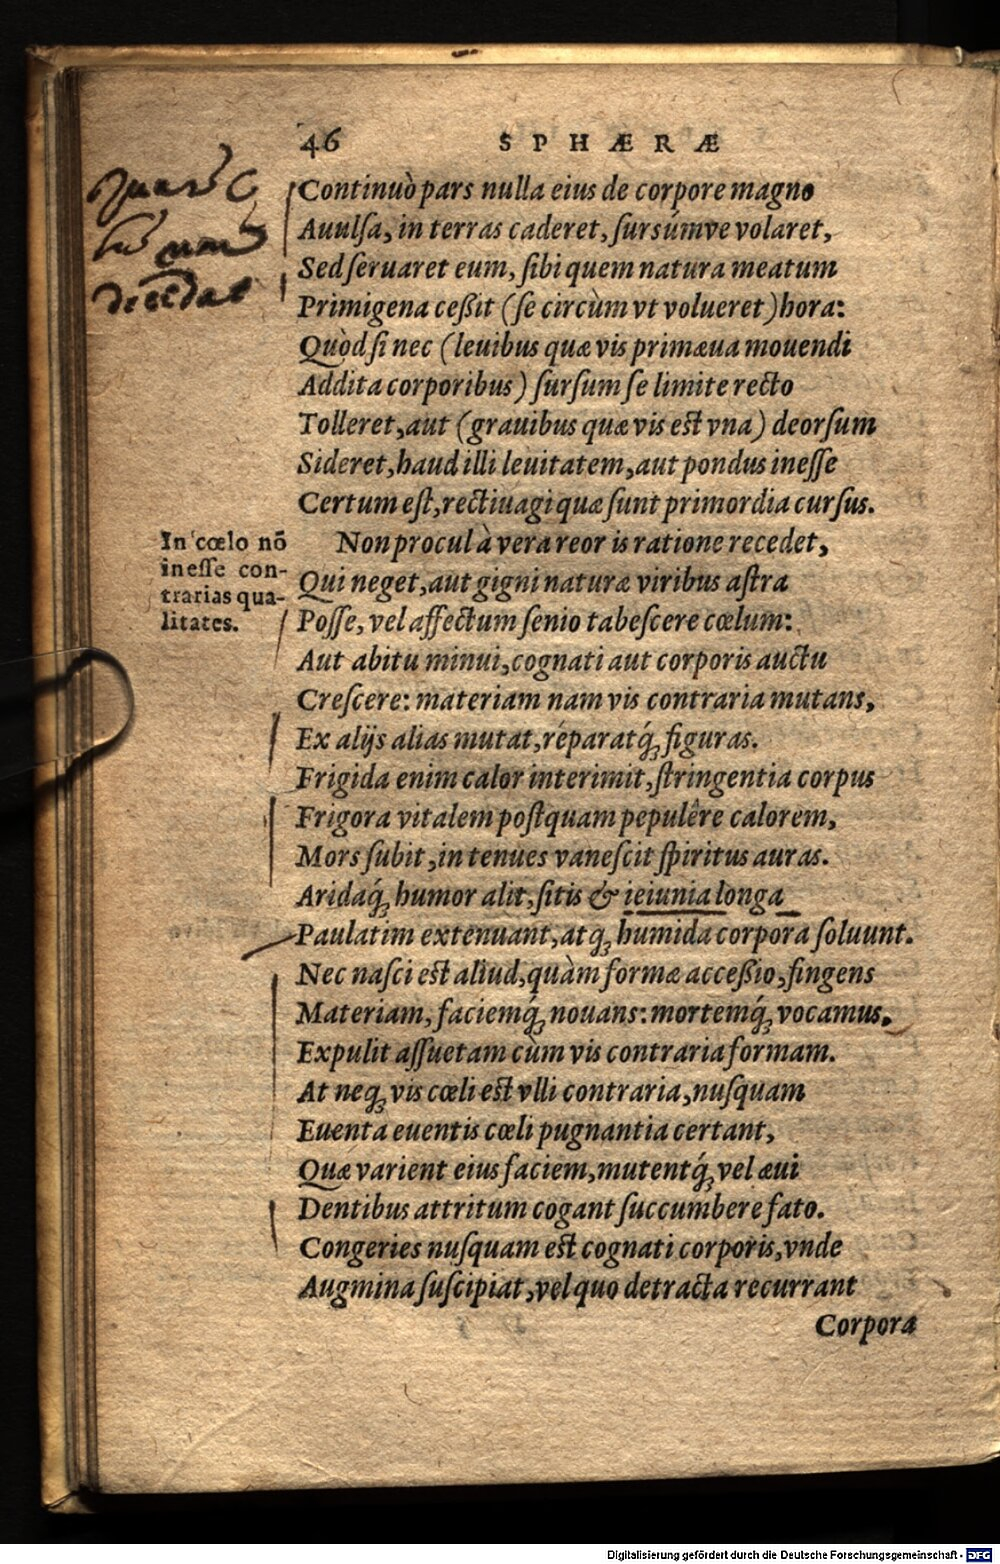 46 SPHÆRÆ
Continuò pars nulla eius de corpore magno
Auulſa, in terras caderet, ſursúmve volaret,
Sed ſeruaret eum, ſibi quem natura meatum
Primigena ceßit (ſe circùm vt volueret) hora:
Quòd ſi nec (leuibus quæ vis primæua mouendi
Addita corporibus) ſurſum ſe limite recto
Tolleret, aut (grauibus quæ vis est vna) deorſum
Sideret, haud illi leuitatem, aut pondus ineſſe
Certum eſt, rectiuagi quæ ſunt primordia curſus.
In cœlo nō
ineſſe con-
trarias qua-
litates.
Non procul à vera reor is ratione recedet,
Qui neget, aut gigni naturæ viribus aſtra
Poſſe, vel affectum ſenio tabeſcere cœlum:
Aut abitu minui, cognati aut corporis auctu
Creſcere: materiam nam vis contraria mutans,
Ex alijs alias mutat, réparatq́ꝫ figuras.
Frigida enim calor interimit, ſtringentia corpus
Frigora vitalem poſtquam pepulêre calorem,
Mors ſubit, in tenues vaneſcit ſpiritus auras.
Aridaq́ꝫ humor alit, ſitis & ieiunia longa
Paulatim extenuant, atqꝫ humida corpora ſoluunt.
Nec naſci est aliud, quàm formæ acceßio, fingens
Materiam, faciemq́ꝫ nouans: mortemq́ꝫ vocamus,
Expulit aſſuetam cùm vis contraria formam.
At neqꝫ vis cœli est vlli contraria, nuſquam
Euenta euentis cœli pugnantia certant,
Quæ varient eius faciem, mutentq́ꝫ vel æui
Dentibus attritum cogant ſuccumbere fato.
Congeries nuſquam est cognati corporis, vnde
Augmina ſuſcipiat, vel quo detracta recurrant
Corpora
Digitalisierung gefördert durch die Deutsche Forschungsgemeinschaft - DFG